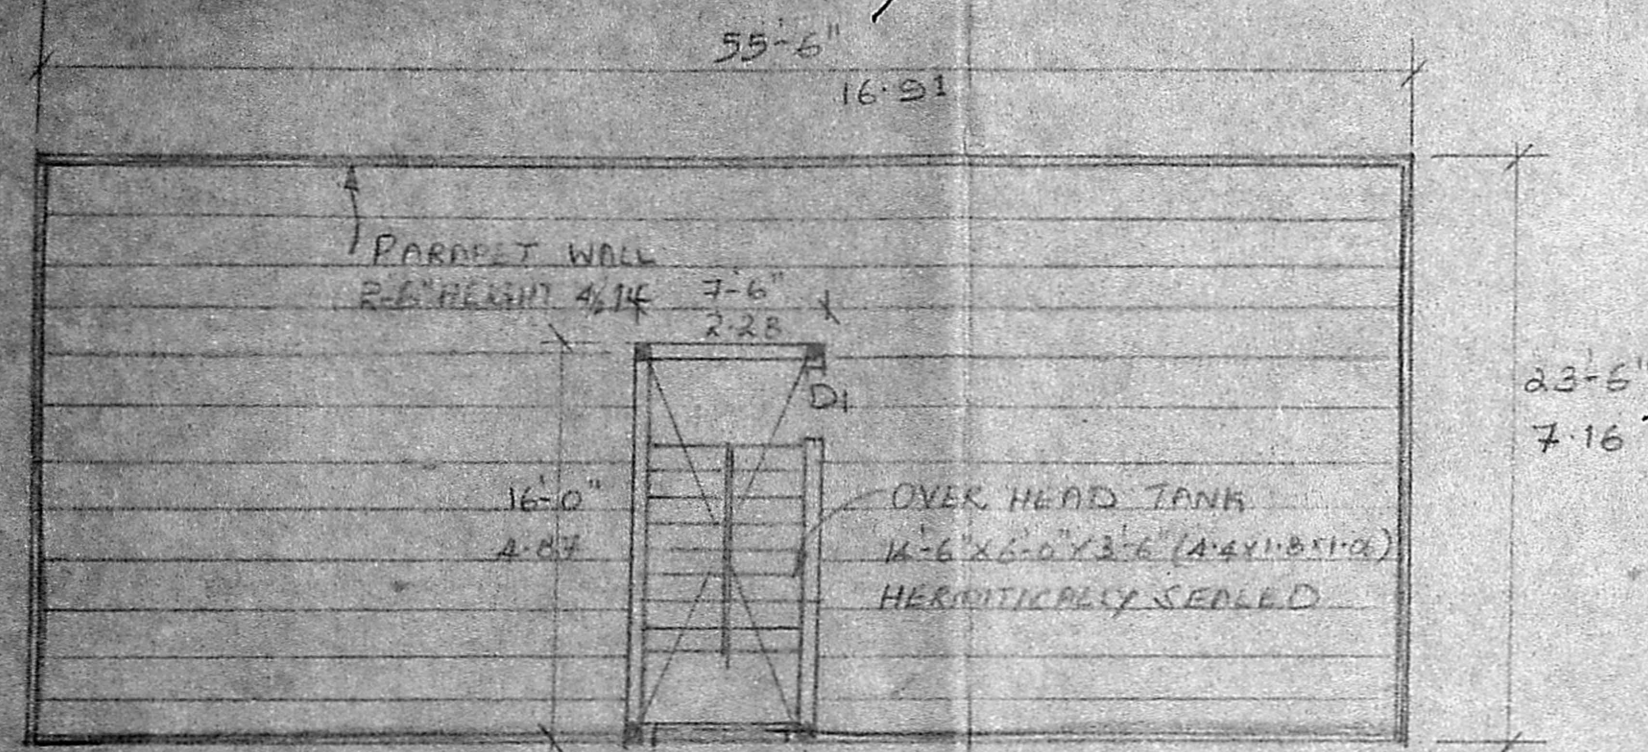 55'-6"
16.91
PARAPET WALL
2'-6" HEIGHT 4½ T4
7'-6"
2.28
D1
23'-6"
7.16
16'-0"
4.87
OVER HEAD TANK
14'-6"X6'-0"X3'-6" (4.4X1.8X1.06)
HERMITICALLY SEALED